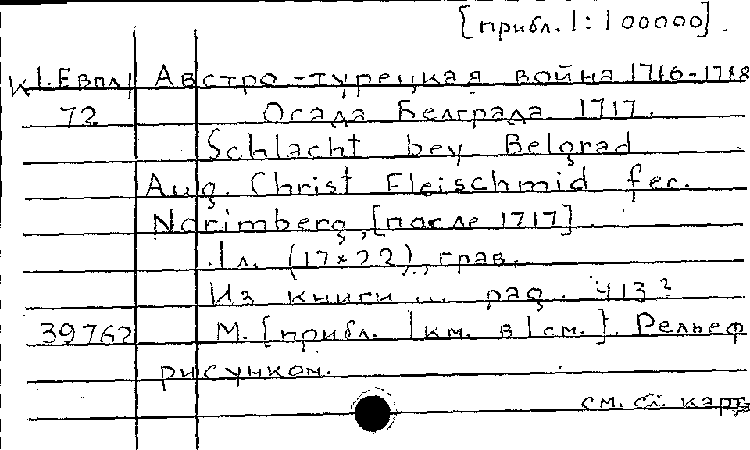 [прибл. 1:100000].
К1.Евпл/ Австро-турецкая война 1716-1718
72 Осада Белграда 1717.
Schlacht bey Belgrad
Aug. Christ Fleischmid fec.
Norimberg, [после 1717]
1л. (17x22), грав.
Из книги ... рад. 413?
39762 М. [прибл. 1км. в 1см.]. Рельеф
рисунком.
см. сл. карт